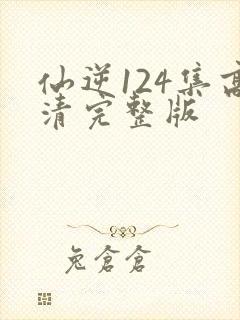 仙逆124集高
清完整版
兔仓仓